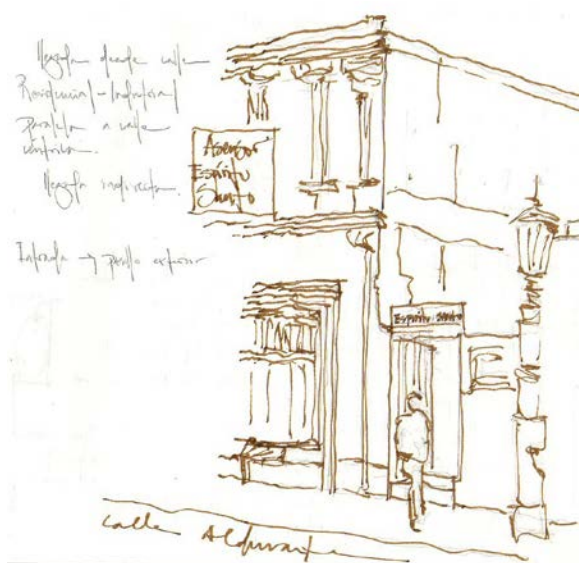 llegada desde calle
Residencial-Industrial
Paralela a calle
llegada indirecta.
Entrada → pasillo exterior
Asensor
Espíritu
Santo
Espíritu Santo
calle Aldunate